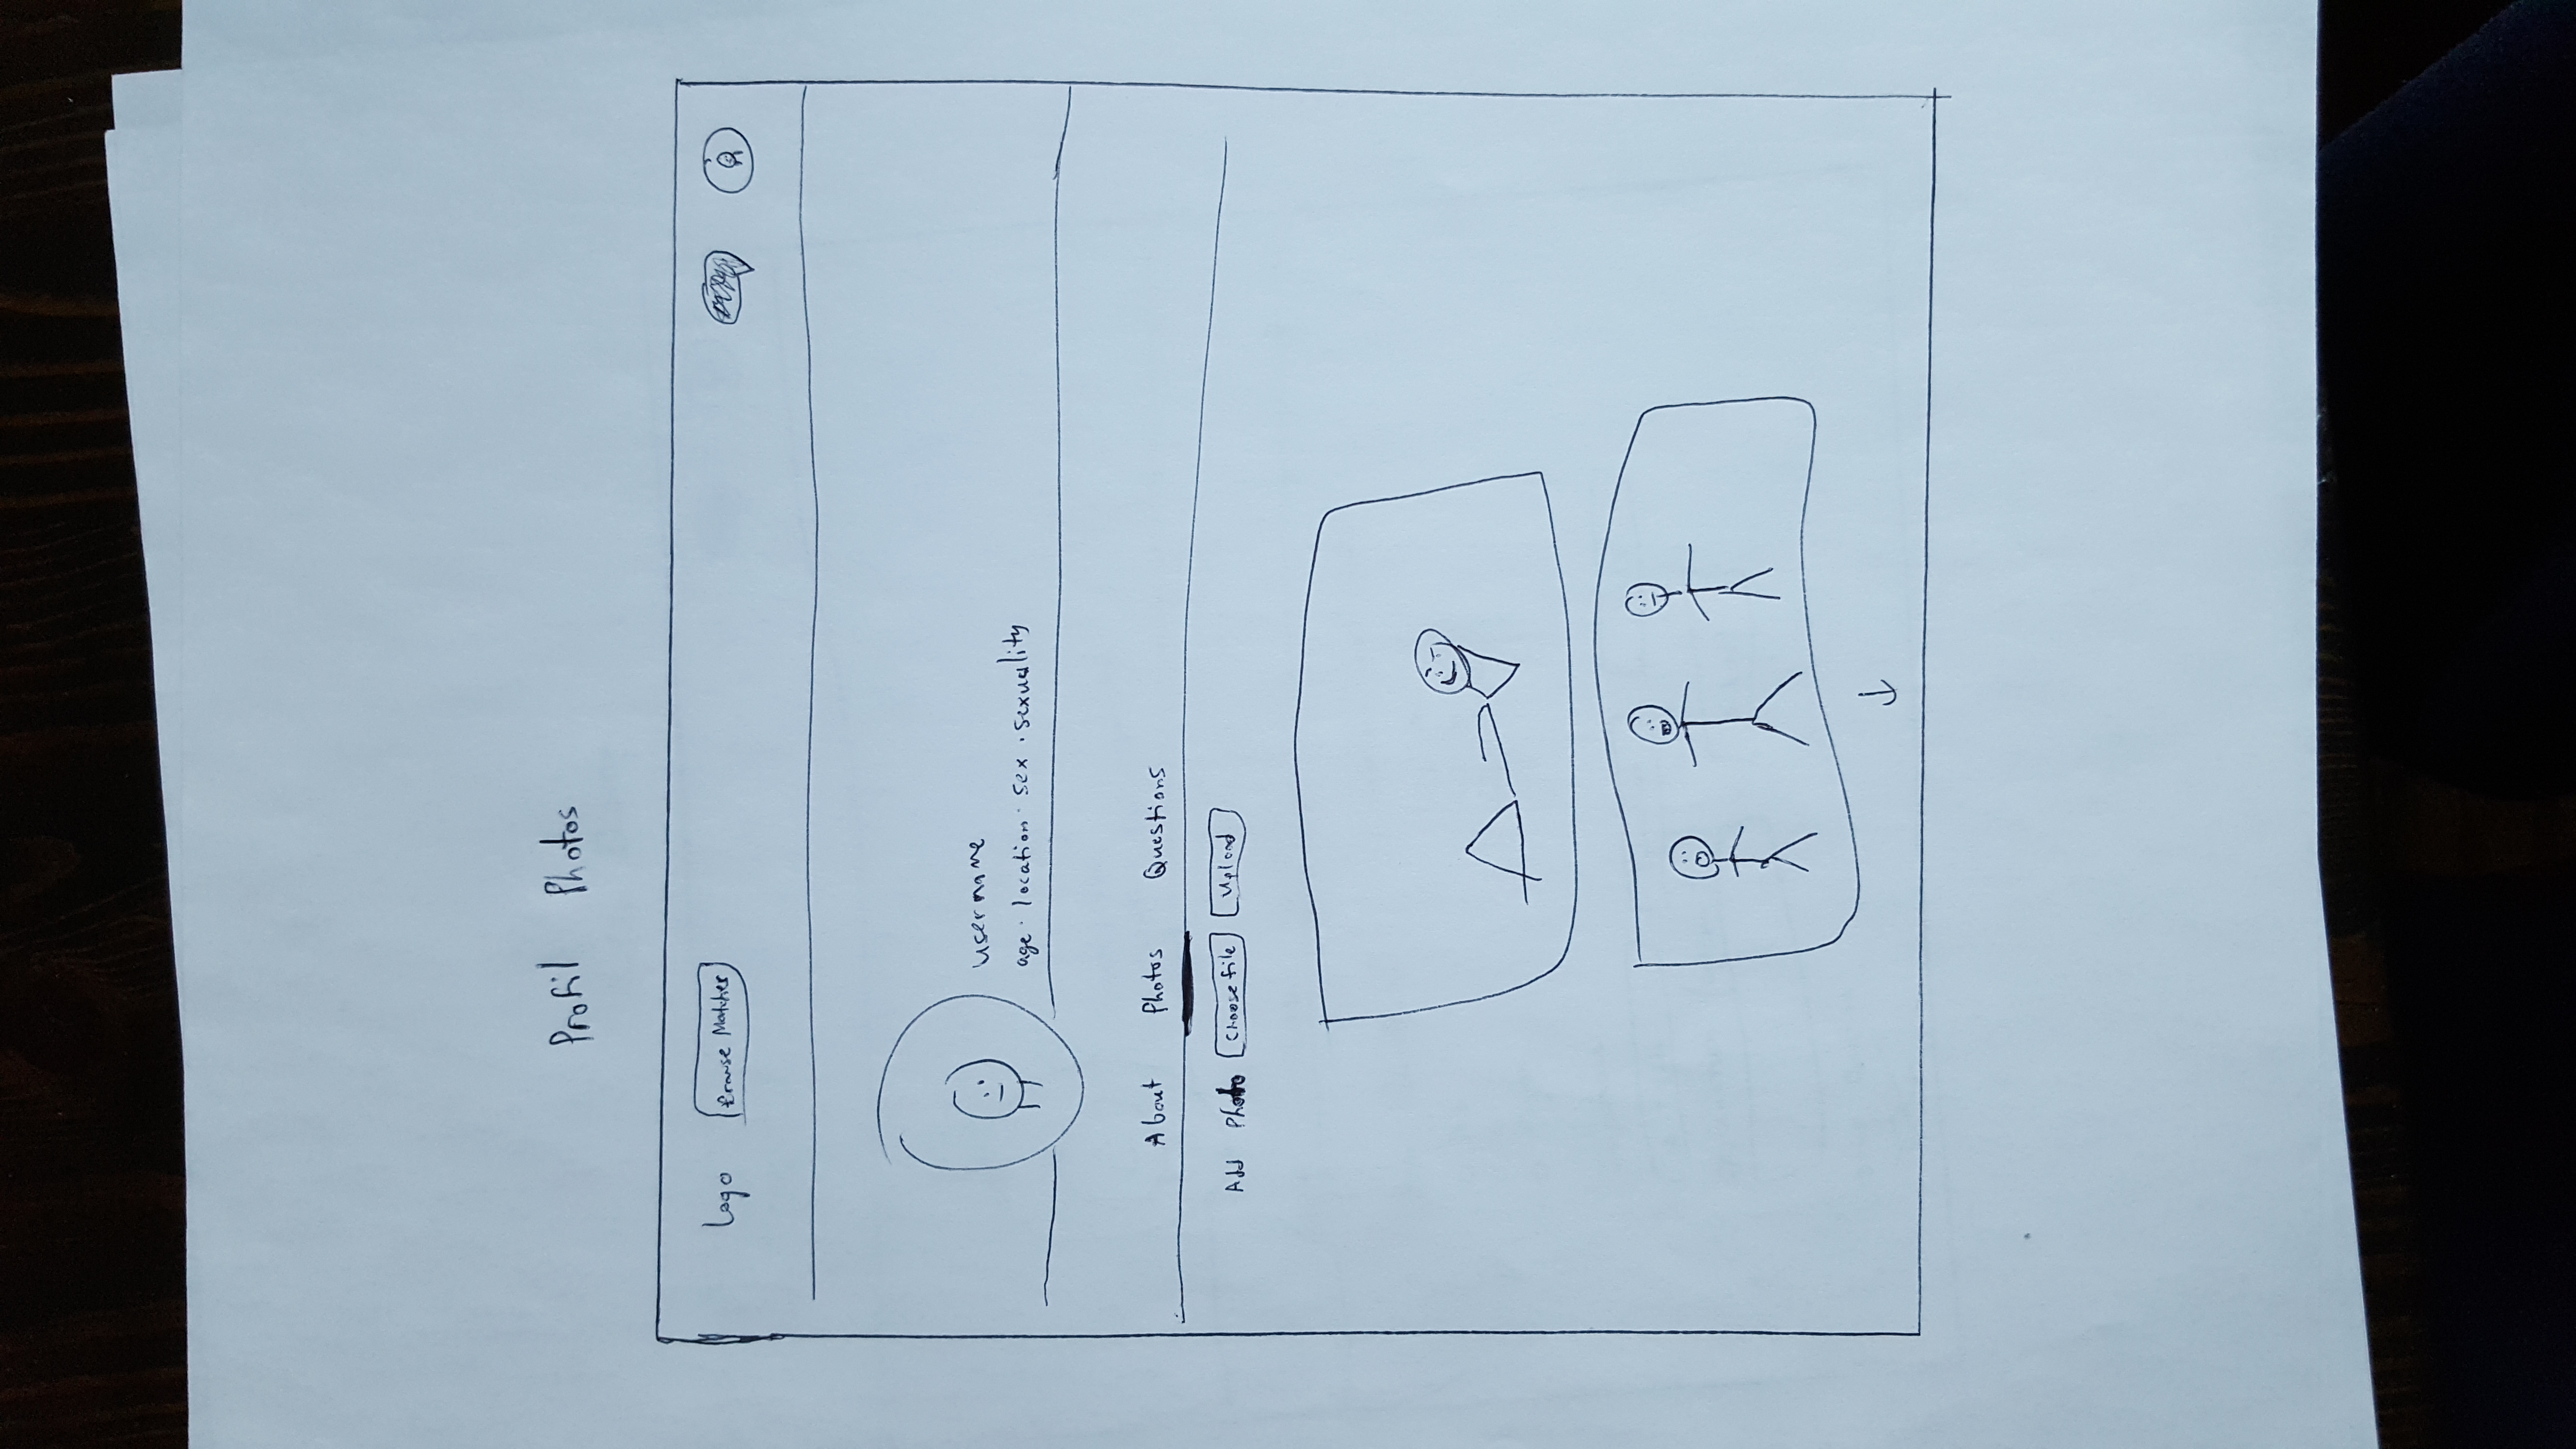 Profil Photos
Logo Browse Matches
username
age · location · sex · sexuality
About Photos Questions
Add Photo Choose file Upload